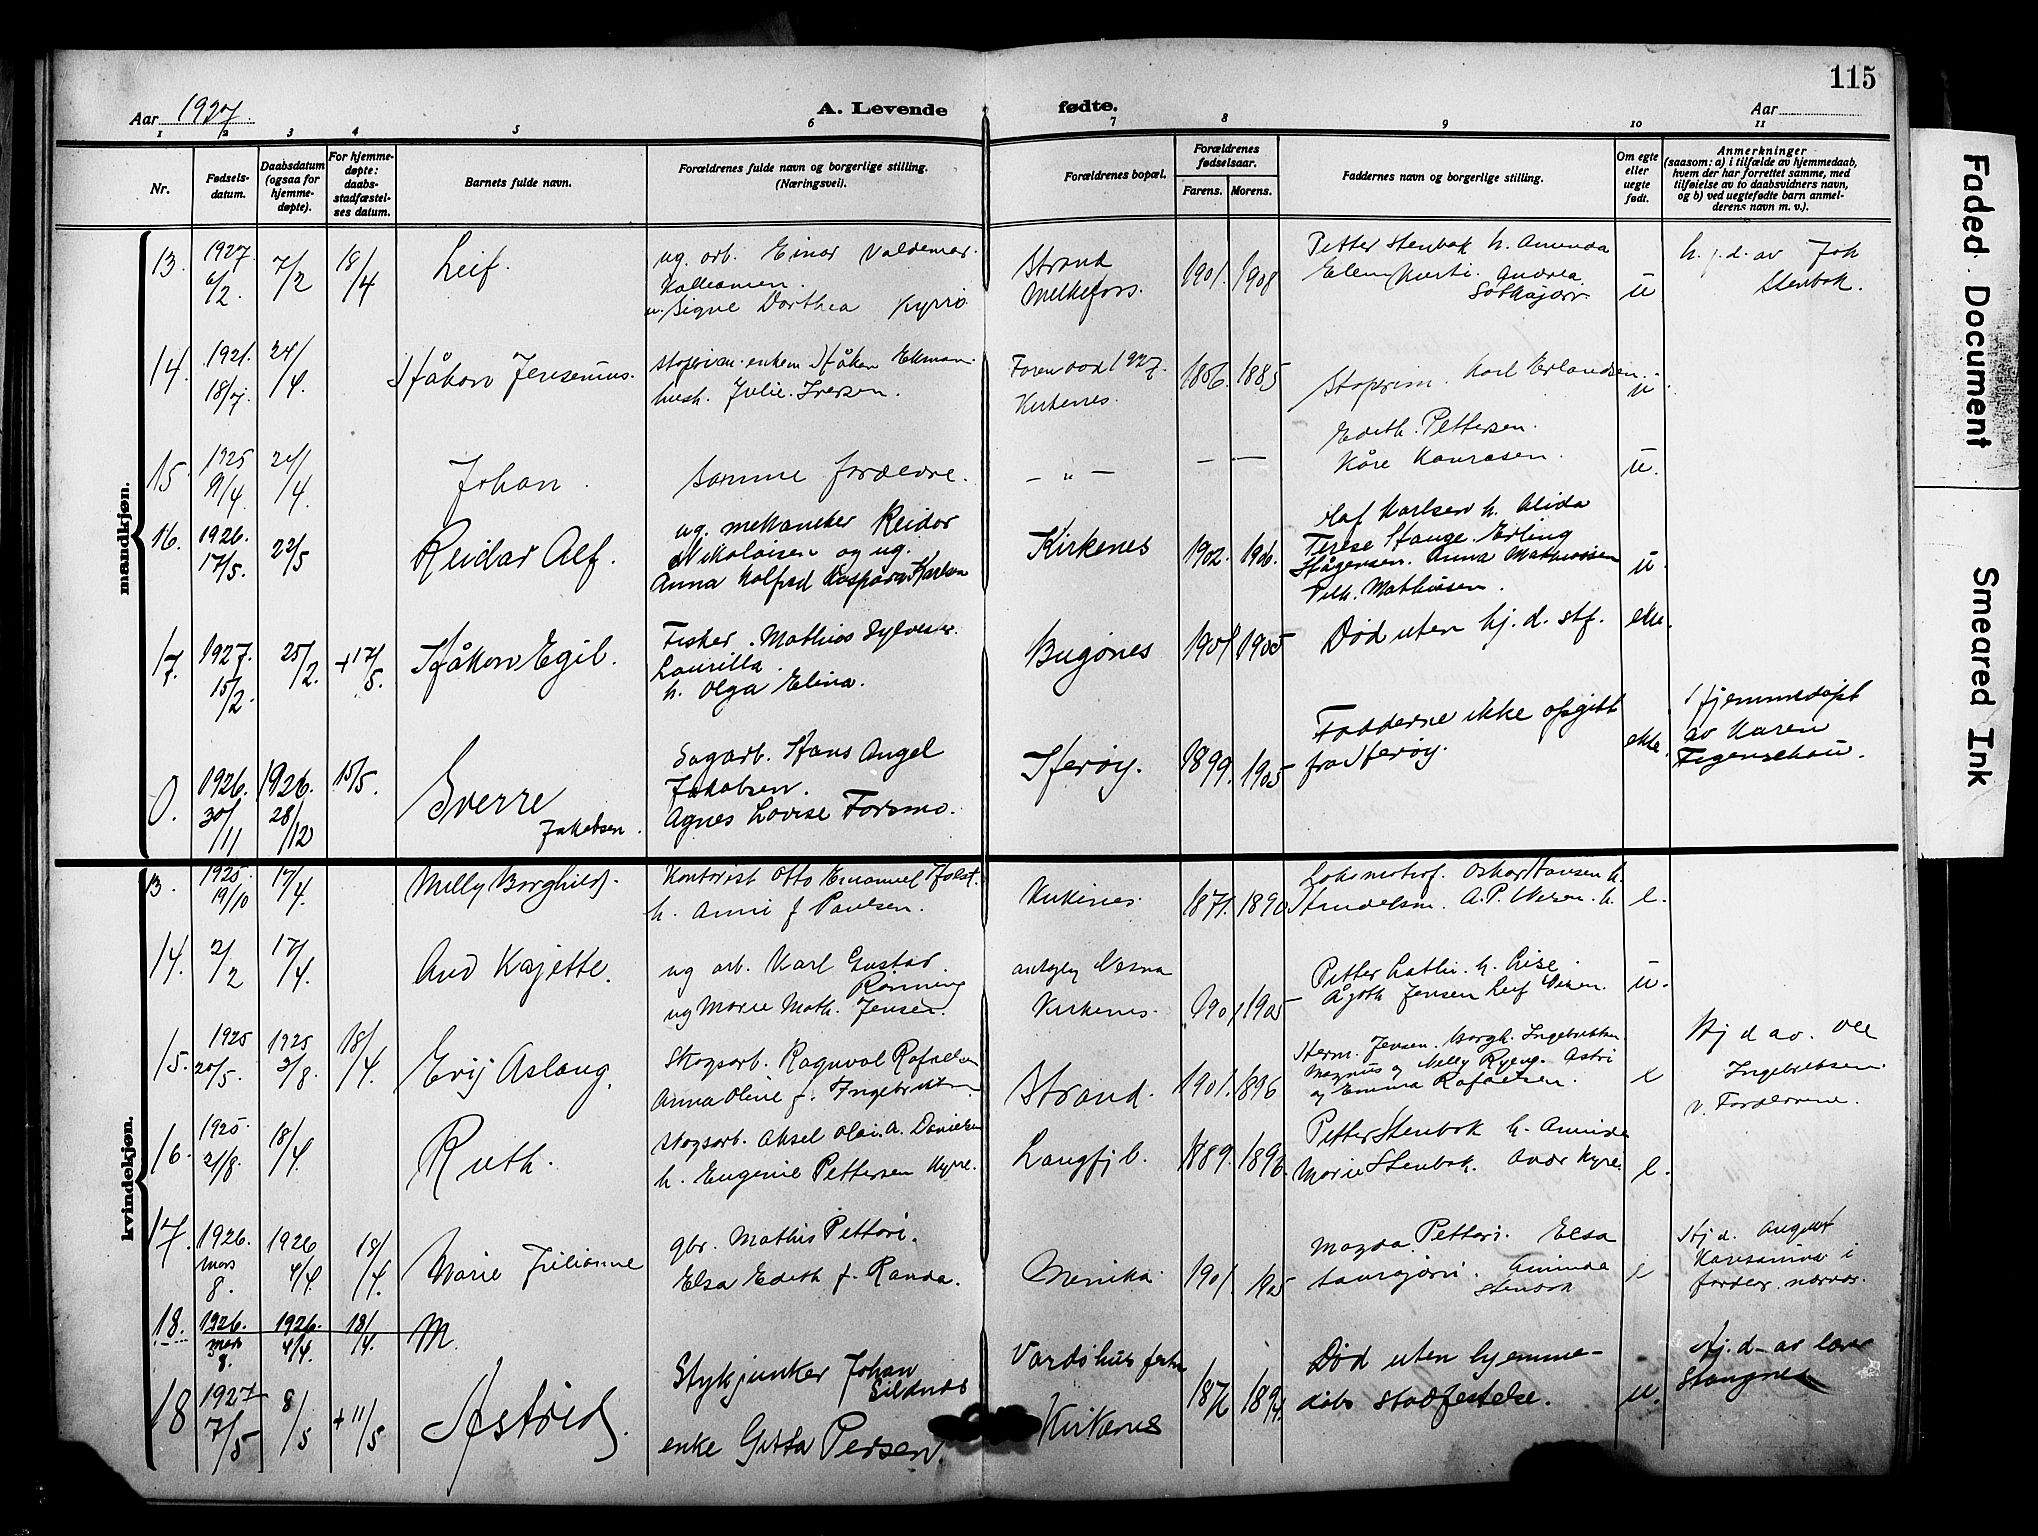 115
Aar 1927.
A. Levende fødte.
Aar
1 2 3 4 5 6 7 8 9 10 11
Nr.
Fødsels-
datum.
Daabsdatum
(ogsaa for
hjemme-
døpte).
For hjemme-
døpte:
daabs-
stadfæstel-
ses datum.
Barnets fulde navn.
Forældrenes fulde navn og borgerlige stilling.
(Næringsvei).
Forældrenes bopæl.
Forældrenes
fødselsaar.
Farens. Morens.
Faddernes navn og borgerlige stilling.
Om egte
eller
uegte
født.
Anmerkninger
(saasom: a) i tilfælde av hjemmedaab,
hvem der har forrettet samme, med
tilføielse av to daabsvidners navn,
og b) ved uegtefødte barn anmel-
derens navn m. v.).
mandkjøn.
13. 1927. 6/2. 7/2 18/4 Leif.
ug. arb. Einar Valdemar
u. Signe Dorthea Kyrrö
Strand
Melkefors.
1901. 1908
Petter Stenbak h. Aminda
u
h. j. d. av Joh
Stenbak.
14. 1921. 18/7. 24/4. Håkon Jensenius.
enkem. Håkon Ekman
hush. Julie Iversen.
Faren død 1927.
Kirkenes.
1856. 1885
Karl Erlandsen
u
Edith. Pettersen.
15. 1925 9/4 24/4 Johan.
samme foreldre.
— „ —
— —
Kåre
u.
16. 1926. 17/5. 22/5 Reidar Alf.
ug. mekaniker Reidar
Nikolaisen og ug.
Anna Kaspara Karlsen
Kirkenes
1902. 1906.
Olaf Karlsen h. Alida
Terese Stange Erling
Anna Mathisen
Mathisen.
u.
17. 1927. 15/2. 25/2. +17/5. Håkon Egil.
Fisker. Mathias Sylvester
Laurilla
h. Olga Elina.
Bugønes
1901 1905
Død uten hj. d. stf.
ekte.
0. 1926. 30/11 1926. 28/12 15/5. Sverre
Jakobsen.
Sagarb. Hans Angel
Jakobsen.
Agnes Lovise Forsmo.
Herøy.
1899. 1905
Fadderne ikke opgitt
fra Herøy.
ekte.
Hjemmedøpt
av Karen
Figenschau.
kvindekjøn.
13. 1925. 19/10 17/4. Milly Borghild.
Kontorist Otto Emanuel Holst.
h. Anni f Paulsen.
Kirkenes.
1871. 1890
Lokomotivf. Oskar Hansen h.
Handelsm. A. P. h.
e.
14. 2/2 17/4. Aud Kajette.
ug arb. Karl Gustav
Rønning
ug Marie Math. Jensen.
Kirkenes.
1901 1905
Petter h. Lise.
Ågoth Jensen Leif
u.
15. 1925 20/5. 1925 2/8. 18/4. Evy Aslaug.
Skogsarb. Ragnval Rafaelsen
Anna Oline f. Ingebrigtsen
Strand.
1901. 1896
Herm. Jensen. Borgh. Ingebrigtsen
Magnus og Milly Ryeng. Astri
og Emma Rafaelsen.
e
Hj d av. Ole
Ingebrigtsen
v. Forældrene.
16. 1925. 21/8. 18/4. Ruth.
Skogsarb. Aksel Olai. A. Danielsen
h. Eugenie Pettersen Kyrre.
Langfj b.
1889. 1896.
Petter Stenbak h. Aminda
Marie Stenbak. Kyrre.
e.
17. 1926. mars 8. 1926 4/4. 18/4. Marie Julianne
gbr. Mathis Pettari.
Elsa Edith f. Randa.
Menika.
1901. 1905
Magda Pettari. Elsa
Aminda
Stenbak
e
Hj d. August
i
forældr. nærvær.
18. 1926. mars 8. 1926. 4/4. 18/4. M.
18 1927 7/5 8/5 +11/5 Astrid.
Stykjunker Johan
Sildnes
enke Gitta Persen.
Vardøhus festn
Kirkenes
1876 1894.
Død uten hjemme-
dåbs stadfestelse.
u.
Hj. d. av lærer
Stangnes
Faded Document
Smeared Ink